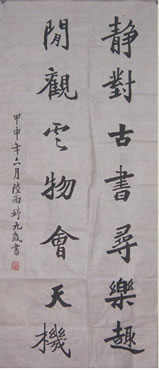 靜對古書尋樂趣
閒觀雲物會天機
甲申年六月陸雨婷九歲書